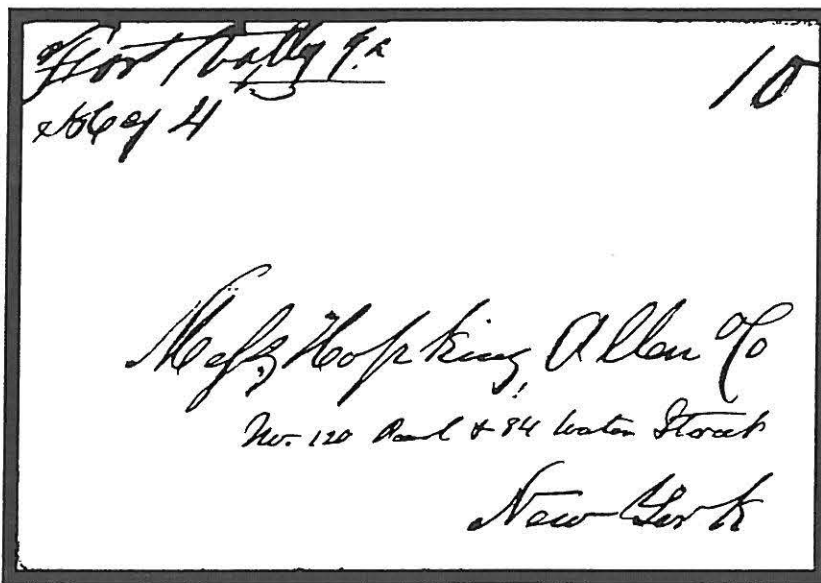 Fort Vally Ga
10
May 4
Mess Hopkins, Allen & Co
No. 120 Pearl & 84 Water Street
New York